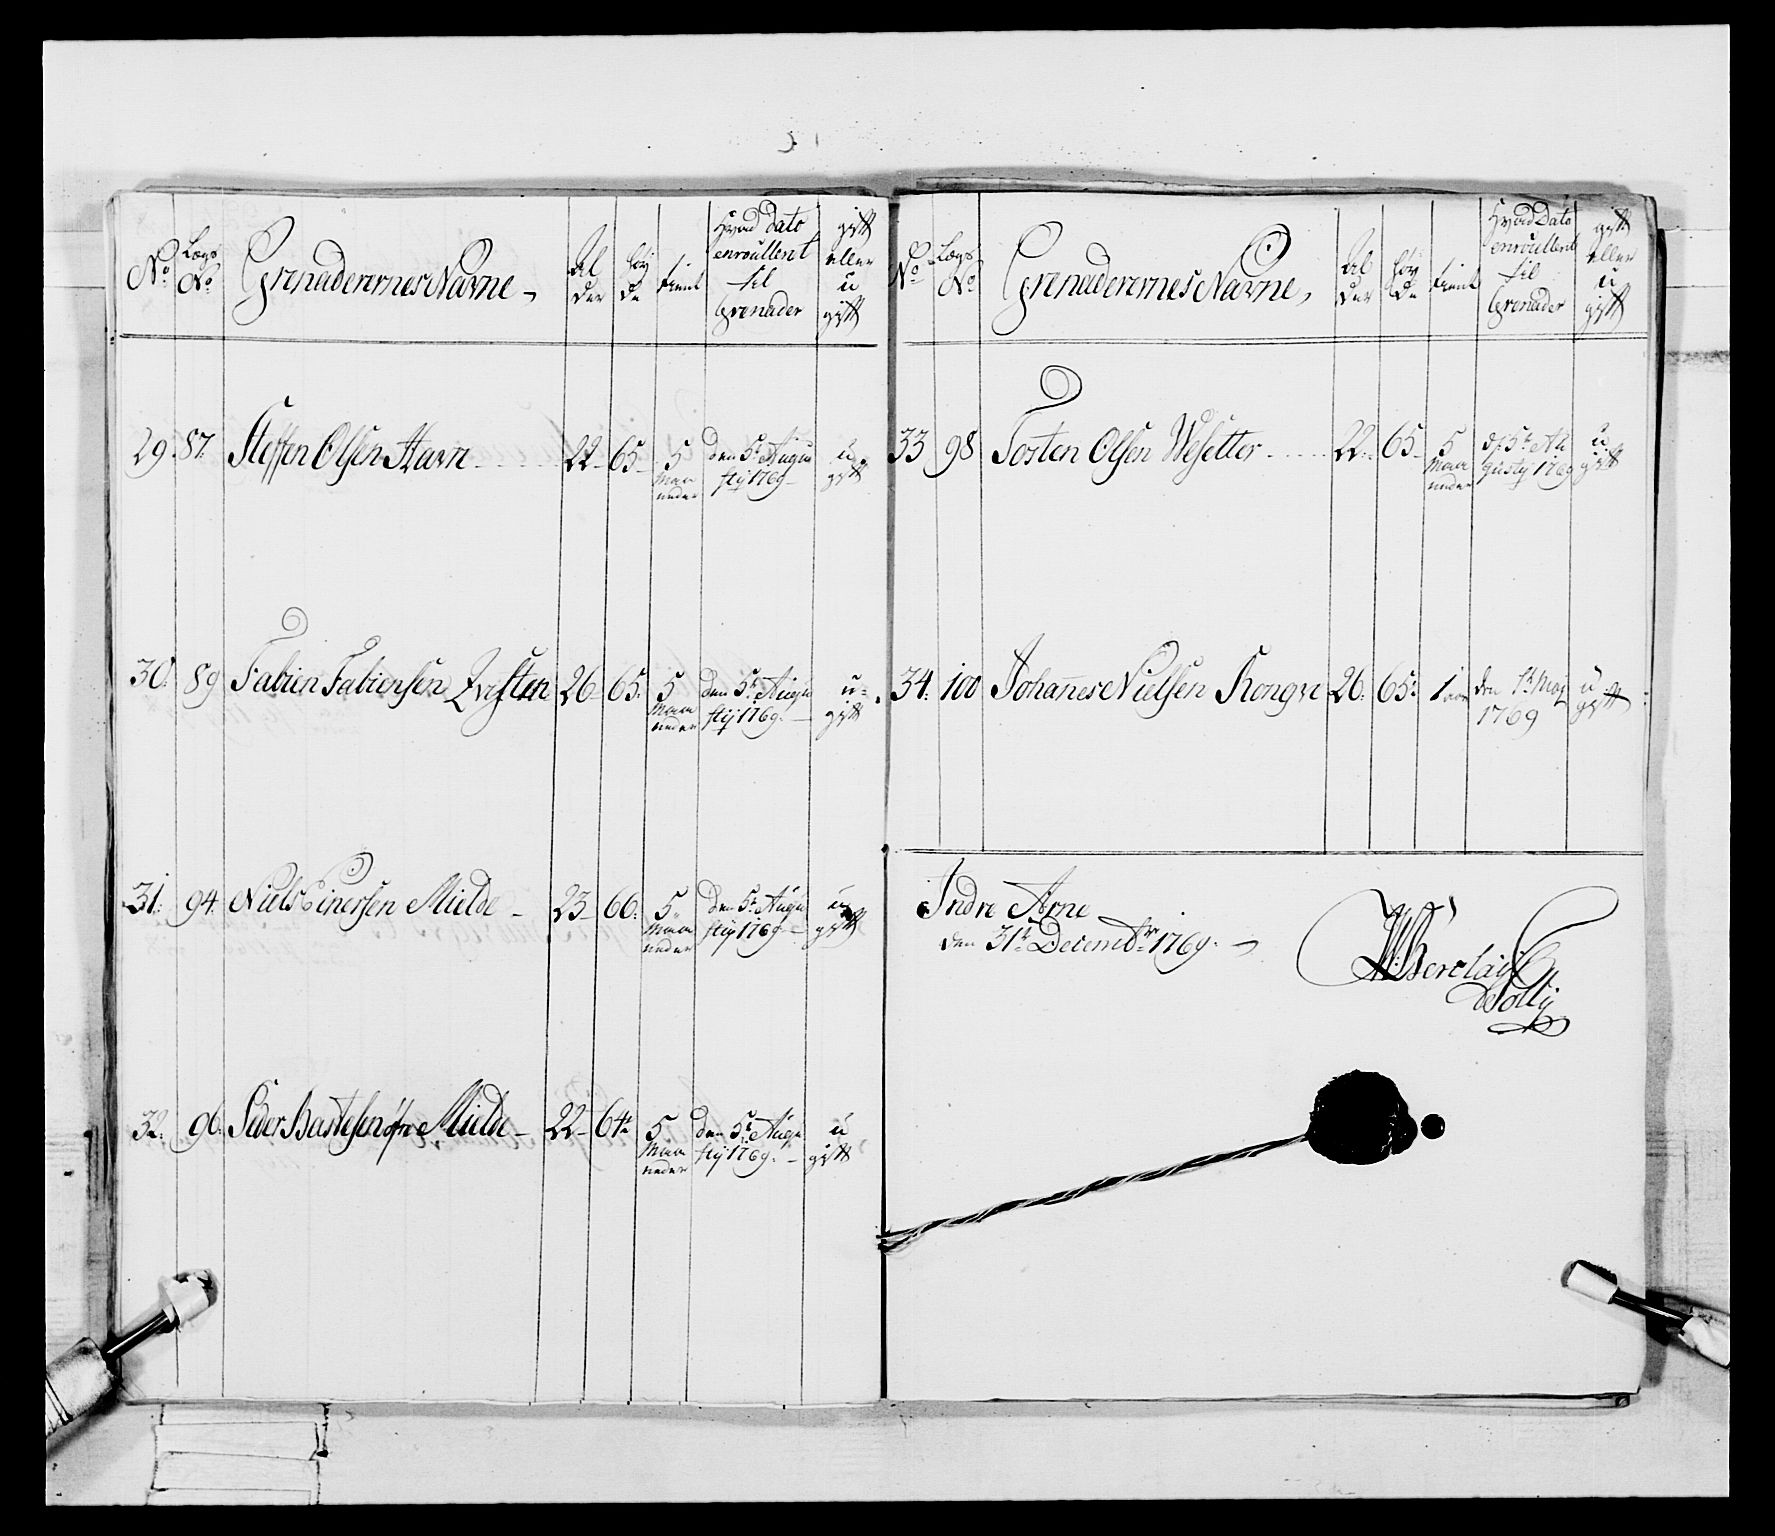 No
Lægs No
Grenaderernes Navne
Al der
Höy de
tient
Hvad Dato enroullerit til Grenader
gift eller u gift
29. 87. Steffen Olsen Havn 22 65 5 Maaneder den 5t Augustij 1769 ugift
30. 89 Fabien Fabiensen Qvisten 26 65. 5 Maaneder den 5t Augustij 1769. u-gift
31. 94. Niels Einersen Mielde 23 66. 5 Maaneder den 5t Augustij 1769 ugift
32. 96. Peder Bastesen öfre Mielde 22 64 5 Maaneder den 5t Augustij 1769. ugift
No
Lægs No
Grenaderernes Navne
Al der
Höy de
tient
Hvad Dato enroullerit til Grenader
gift eller u gift
33 98 Tosten Olsen Wesetter 22. 65 5 Maaneder d. 5t Augustij 1769 ugift
34. 100 Johannes Nielsen Kongve 26. 65. 1 aar den 1t Maj 1769 ugift
Indre Arne
den 31t Decembr 1769.